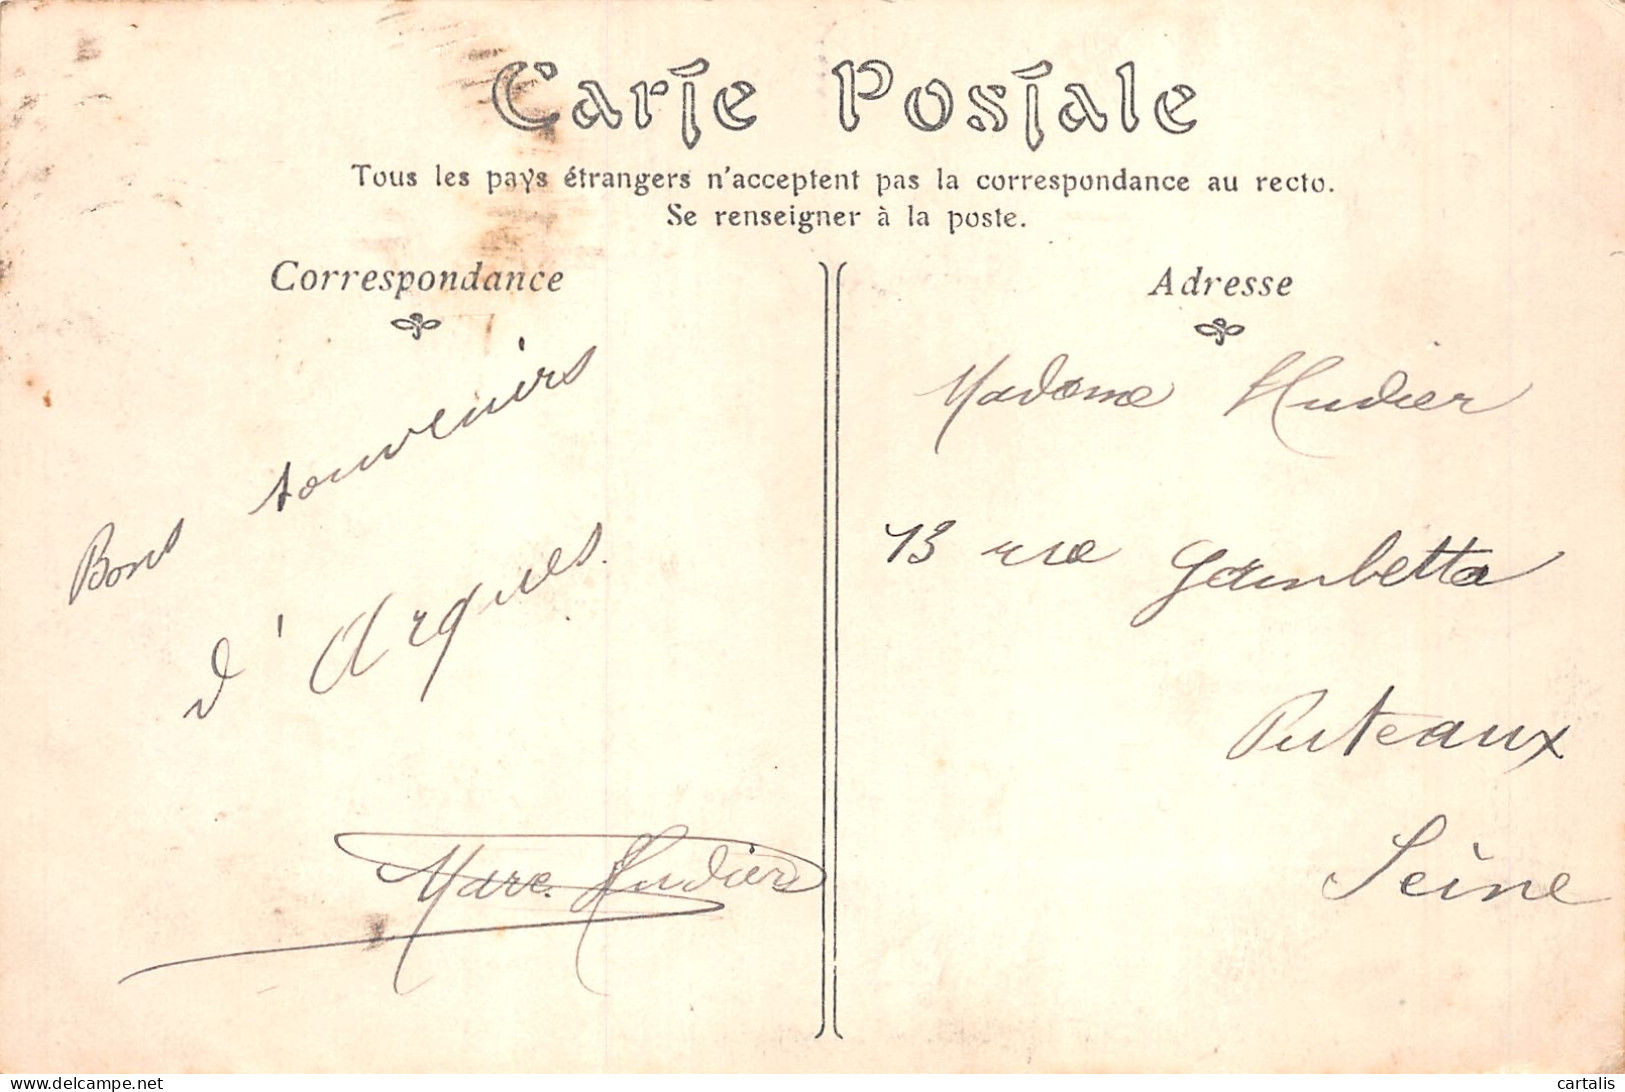 Carte Postale
Tous les pays étrangers n'acceptent pas la correspondance au recto.
Se renseigner à la poste.
Correspondance
Bons souvenirs
d'Arques.
Marc Hudier
Adresse
Madame Hudier
13 rue Gambetta
Puteaux
Seine
https://www.delcampe.net
cartalis